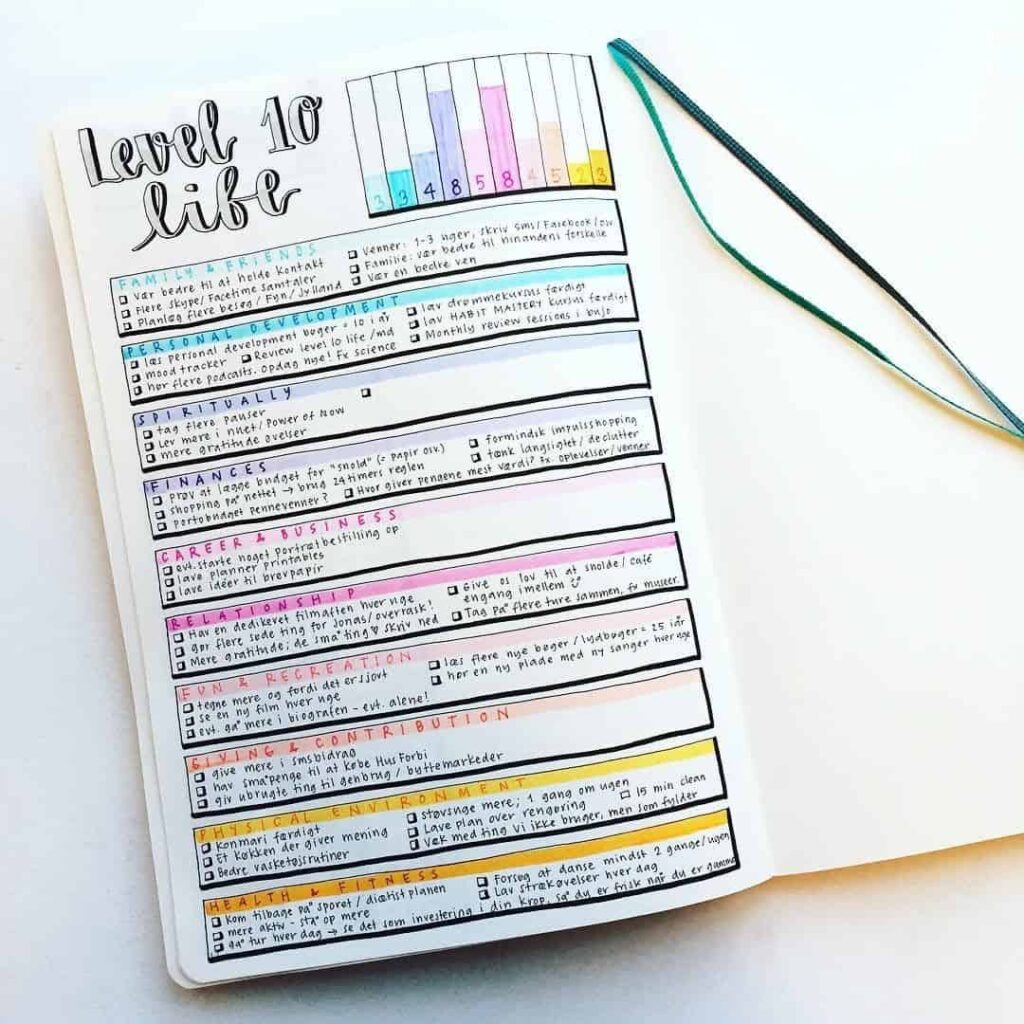 Level 10
life
3 3 4 8 5 8 4 5 2 3
FAMILY & FRIENDS
Vær bedre til at holde kontakt
Flere skype/Facetime samtaler
Planlæg flere besøg / Fyn / Jylland
Venner: 1-3 uger, skriv sms/Facebook/osv
Familie: vær bedre til hinandens forskelle
Vær en bedre ven
PERSONAL DEVELOPMENT
læs personal development bøger = 10 i år
mood tracker Review level 10 life /md
hør flere podcasts. Opdag nye! Fx science
lav drømmekursus færdigt
lav HABIT MASTERY kursus færdigt
Monthly review sessions i bujo
SPIRITUALLY
tag flere pauser
Lev mere i nuet/Power of Now
mere gratitude øvelser
FINANCES
prøv at lægge budget for "snold" (= papir osv.)
shopping på nettet → brug 24timers reglen
portobudget pennevenner? Hvor giver pengene mest værdi? Fx oplevelser/venner
formindsk impulsshopping
tænk langsigtet/declutter
CAREER & BUSINESS
evt. starte noget portrætbestilling op
lave planner printables
lave idéer til brevpapir
RELATIONSHIP
Hav en dedikeret filmaften hver uge
gør flere søde ting for Jonas/overrask!
Mere gratitude; de små ting ♥ skriv ned
Give os lov til at snolde / café
engang imellem
Tag på flere ture sammen, fx museer.
FUN & RECREATION
tegne mere og fordi det er sjovt
se en ny film hver uge
evt. gå mere i biografen - evt. alene!
læs flere nye bøger / lydbøger = 25 i år
hør en ny plade med ny sanger hver uge
GIVING & CONTRIBUTION
give mere i smsbidrag
hav småpenge til at købe Hus Forbi
giv ubrugte ting til genbrug / byttemarkeder
PHYSICAL ENVIRONMENT
Konmari færdigt
Et køkken der giver mening
Bedre vasketøjsrutiner
støvsuge mere; 1 gang om ugen
Lave plan over rengøring 15 min clean
Væk med ting vi ikke bruger, men som fylder
HEALTH & FITNESS
Kom tilbage på sporet / diætist planen
mere aktiv - stå op mere
gå tur hver dag → se det som investering i din krop, så du er frisk når du er gammel
Forsøg at danse mindst 2 gange/ugen
Lav strækøvelser hver dag